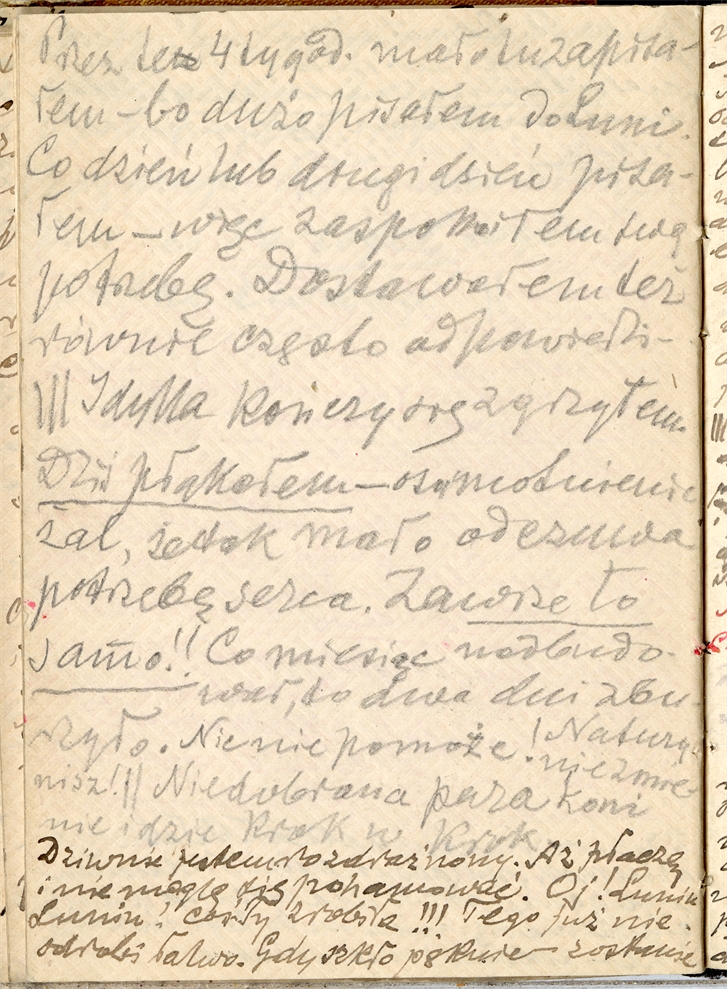 Przez te 4 tygod. mało tu zapisa-
łem – bo dużo pisałem do Luni.
Co dzień lub drugi dzień pisa-
łem – więc zaspokoiłem swą
potrzebę. Dostawałem też
równie często odpowiedzi –
||| Idylla kończy się zgrzytem.
Dziś płakałem – osamotnienie
żal, że tak mało odczuwa
potrzebę serca. Zawsze to
samo!! Co miesiąc nadbudo-
wał, to dwa dni zbu-
rzyło. Nic nie pomoże! Natury
nie zmie-
nisz! || Niedobrana para koni
nie idzie krok w krok.
Dziwnie jestem rozdrażniony. Aż płaczę
i nie mogę się pohamować. Oj! Luniu
Luniu! coś Ty zrobiła!!! Tego już nie
odrobi łatwo. Gdy szkło pęknie – zostanie